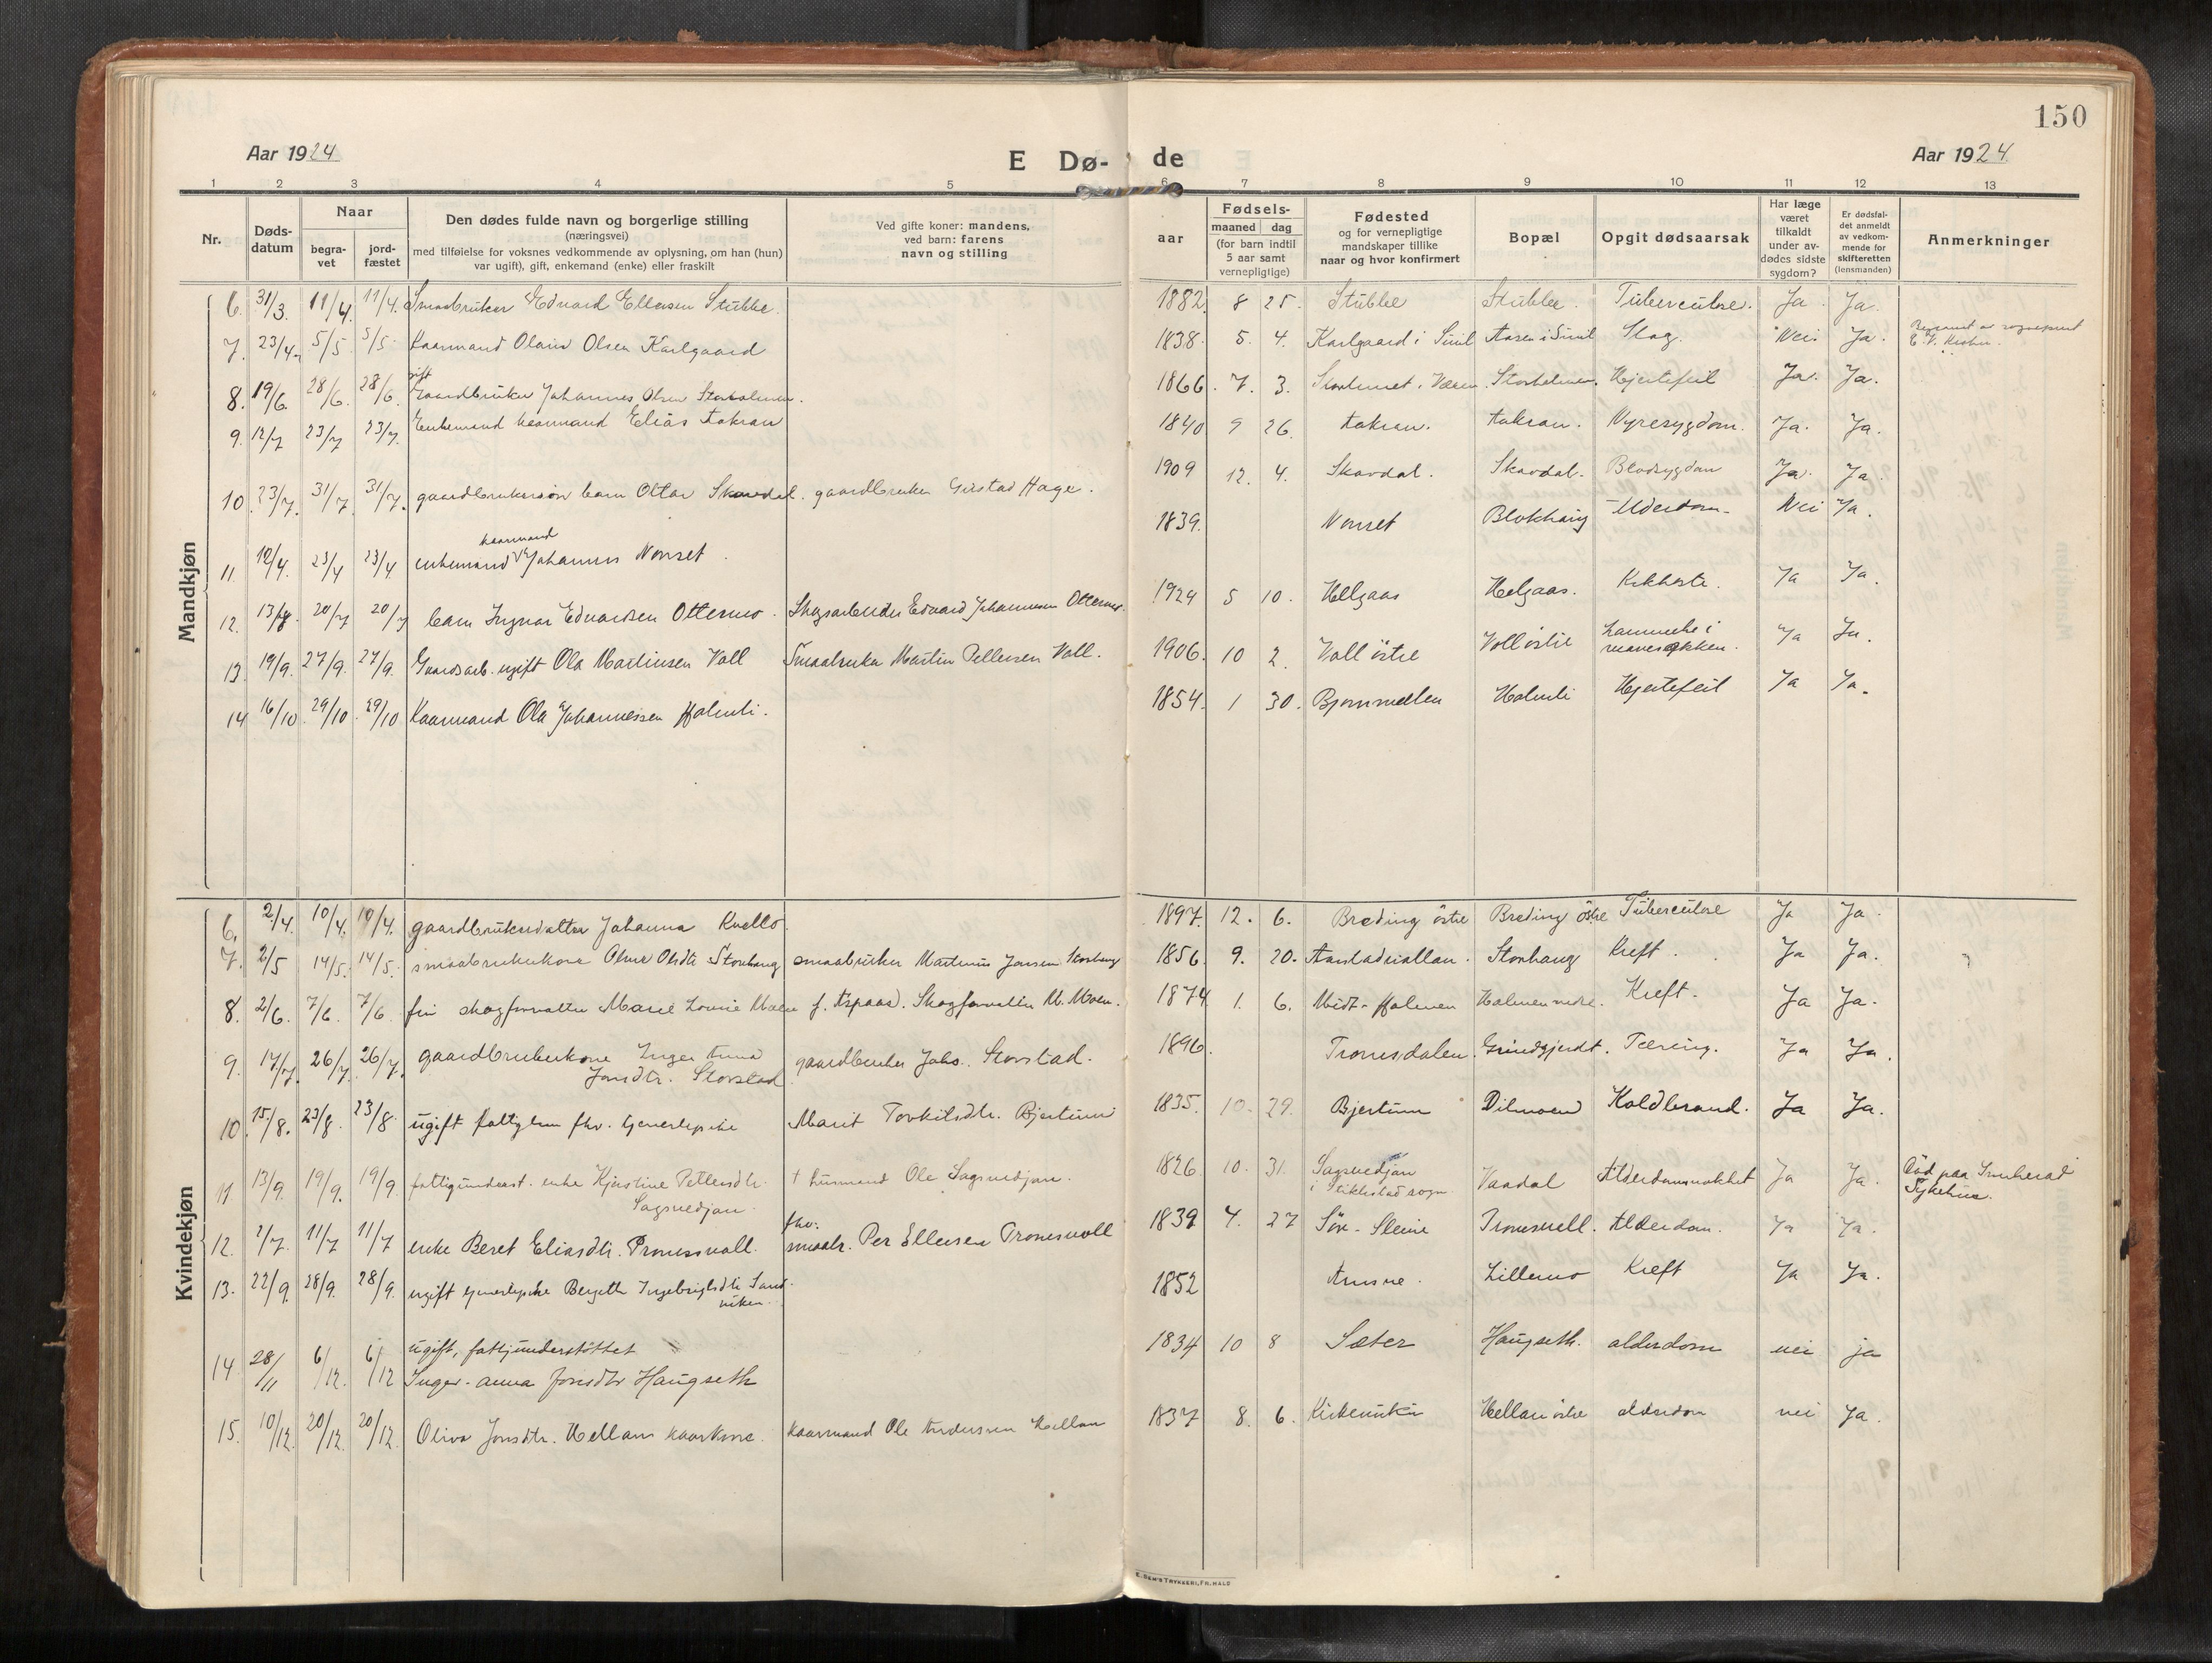 150
Aar 1924
E Dø- de
Aar 1924
1 2 3 4 5 6 7 8 9 10 11 12 13
Nr.
Døds-
datum
Naar
begra-
vet
jord-
fæstet
Den dødes fulde navn og borgerlige stilling
(næringsvei)
med tilføielse for voksnes vedkommende av oplysning, om han (hun)
var ugift), gift, enkemand (enke) eller fraskilt
Ved gifte koner: mandens,
ved barn: farens
navn og stilling
Fødsels-
aar
maaned dag
(for barn indtil
5 aar samt
vernepligtige)
Fødested
og for vernepligtige
mandskaper tillike
naar og hvor konfirmert
Bopæl
Opgit dødsaarsak
Har læge
været
tilkaldt
under av-
dødes sidste
sygdom?
Er dødsfal-
det anmeldt
av vedkom-
mende for
skifteretten
(lensmanden)
Anmerkninger
Mandkjøn
6. 31/3. 11/4. 11/4. Smaabruker Edvard Ellensen Stubbe. 1882. 8 25. Stubbe Stubbe. Tuberculose. Ja. Ja.
7. 23/4. 5/5. 5/5. Kaarmand Olaus Olsen Karlgaard 1838. 5. 4. Karlgaard i Suul Aasen i Suul Slag. Nei. Ja.
gift
8. 19/6. 28/6. 28/6. Gaardbruker Johannes Olsen Storholmen. 1866. 7. 3. Storholmen. Hjertefeil Ja. Ja.
9. 12/7 23/7 23/7. Enkemand kaarmand Elias Aakran 1840 9 26. Aakran. Aakran. Nyresygdom. Ja. Ja.
10. 23/7. 31/7. 31/7. gaardbrukersøn barn Ottar Skavdal. gaardbruker Gustav Hage. 1909 12. 4. Skavdal. Skavdal. Blodsygdom Ja. Ja
kaarmand
11. 10/4. 23/4 23/4 enkemand Johannes Nonset. 1839. Nonset Blokhaug Alderdom. Nei Ja.
12. 13/7. 20/7 20/7 barn Ingvar Edvardsen Ottermo. Skogsarbeider Edvard Johannesen Ottermo. 1924 5 10. Helgaas Helgaas. Kikhoste. Ja Ja.
13. 19/9. 27/9. 27/9. Gaardsarb. ugift Ola Martinsen Voll Smaabruker Martin Pettersen Voll. 1906. 10 2. Voll östre Voll östre Lammelse i
mavesækken. Ja Ja.
14 16/10. 29/10. 29/10 Kaarmand Ola Johannessen Holmli. 1854. 1 30. Bjørnmelen Holmli Hjertefeil Ja Ja.
Kvindekjøn
6. 2/4. 10/4. 10/4. gaardbrukerdatter Johanna Kvello. 1897. 12. 6. Breding östre Breding östre Tuberculose Ja Ja.
7. 2/5 14/5. 14/5. smaabrukerkone Olsdtr Storhaug smaabruker Martinus Jonsen Storhaug 1856. 9. 20. Storhaug Kreft. Ja Ja.
8. 2/6. 7/6. 7/6. fru skogforvalter Marie Lovise Moen f. Aspaas. Skogforvalter M. Moen. 1874 1. 6. Midt-Holmen Holmen nedre. Kreft. Ja Ja.
9. 17/7. 26/7. 26/7. gaardbrukerkone Inger Anna
Jonsdtr. Storstad gaardbruker Johs. Storstad. 1896. Tronesdalen. Grindgjerdt. Tæring. Ja Ja.
10. 15/8. 23/8. 23/8. ugift fattiglem fhv. tjenestepike Marit Torkilsdtr. Bjertun 1835. 10. 29. Bjertun Dilmoen Koldbrand. Ja Ja.
11 13/9. 19/9. 19/9. fattigunderst. enke Kjerstine Pettersdtr.
Sagvedjan. † husmand Ole Sagvedjan. 1826. 10. 31. Sagvedjan
i Stiklestad sogn Vaadal Alderdomssvakhet Ja Ja. Død paa Innherad
Sykehus.
fhv.
12. 2/7. 11/7 11/7 enke Beret Eliasdtr. Tronesvoll. smaabr. Per Ellensen Tronesvoll 1839 4. 27 Sør-Steine Tronesvoll. Alderdom. Ja Ja.
13. 22/9. 28/9. 28/9. ugift tjenestepike Bergitte Ingebrigtsdtr Sand-
viken. 1852 Lillemo Kreft Ja Ja.
ugift, fattigunderstöttet
14. 28/11 6/12. 6/12 Inger-anna Jonsdtr Haugseth 1834 10 8 Sæter Haugseth. alderdom nei ja
15. 10/12. 20/12. 20/12. Oliva Jonsdtr. Hellan kaarkone. kaarmand Ole Andersen Hellan 1837 8. 6. Hellan östre alderdom nei Ja.
E. SEM'S TRYKKERI, FR.HALD